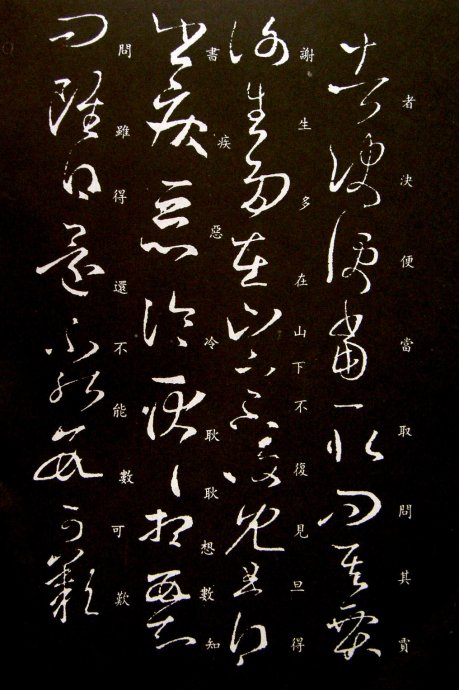 者決便當取問其貢
謝生多在山下不復見旦得
書疾惡冷耿耿想數知
問雖得還不能數可歎